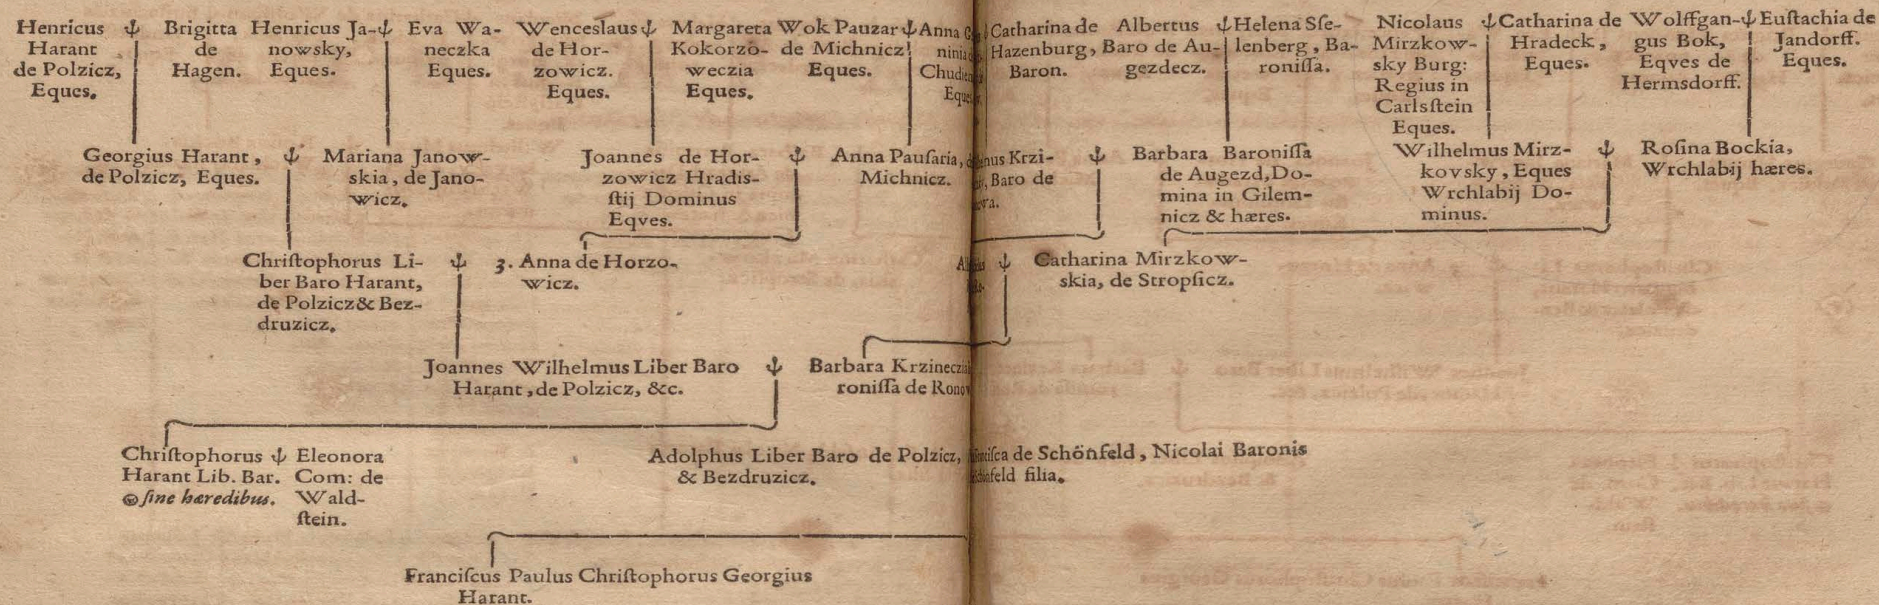 Henricus
Harant
de Polzicz,
Eques.
Brigitta
de
Hagen.
Henricus Ja-
nowsky,
Eques.
Eva Wa-
neczka
Eques.
Wenceslaus
de Hor-
zowicz.
Eques.
Margareta
Kokorzo-
weczia
Eques.
Wok Pauzar
de Michnicz
Eques.
Anna
Catharina de
Hazenburg,
Baron.
Albertus
Baro de Au-
gezdecz.
Helena Sſe-
lenberg, Ba-
roniſſa.
Nicolaus
Mirzkow-
sky Burg:
Regius in
Carlsſtein
Eques.
Catharina de
Hradeck,
Eques.
Wolffgan-
gus Bok,
Eqves de
Hermsdorff.
Euſtachia de
Jandorff.
Eques.
Georgius Harant,
de Polzicz, Eques.
Mariana Janow-
skia, de Jano-
wicz.
Joannes de Hor-
zowicz Hradis-
ſtij Dominus
Eqves.
Anna Pauſaria,
Michnicz.
Krzi-
Baro de
Barbara Baroniſſa
de Augezd, Do-
mina in Gilem-
nicz & hæres.
Wilhelmus Mirz-
kovsky, Eques
Wrchlabij Do-
minus.
Roſina Bockia,
Wrchlabij hæres.
Chriſtophorus Li-
ber Baro Harant,
de Polzicz & Bez-
druzicz.
3. Anna de Horzo-
wicz.
Catharina Mirzkow-
skia, de Stropſicz.
Joannes Wilhelmus Liber Baro
Harant, de Polzicz, &c.
Barbara
roniſſa de
Chriſtophorus
Harant Lib. Bar.
ſine hæredibus.
Eleonora
Com: de
Wald-
ſtein.
Adolphus Liber Baro de Polzicz,
& Bezdruzicz.
de Schönfeld, Nicolai Baronis
filia.
Franciſcus Paulus Chriſtophorus Georgius
Harant.